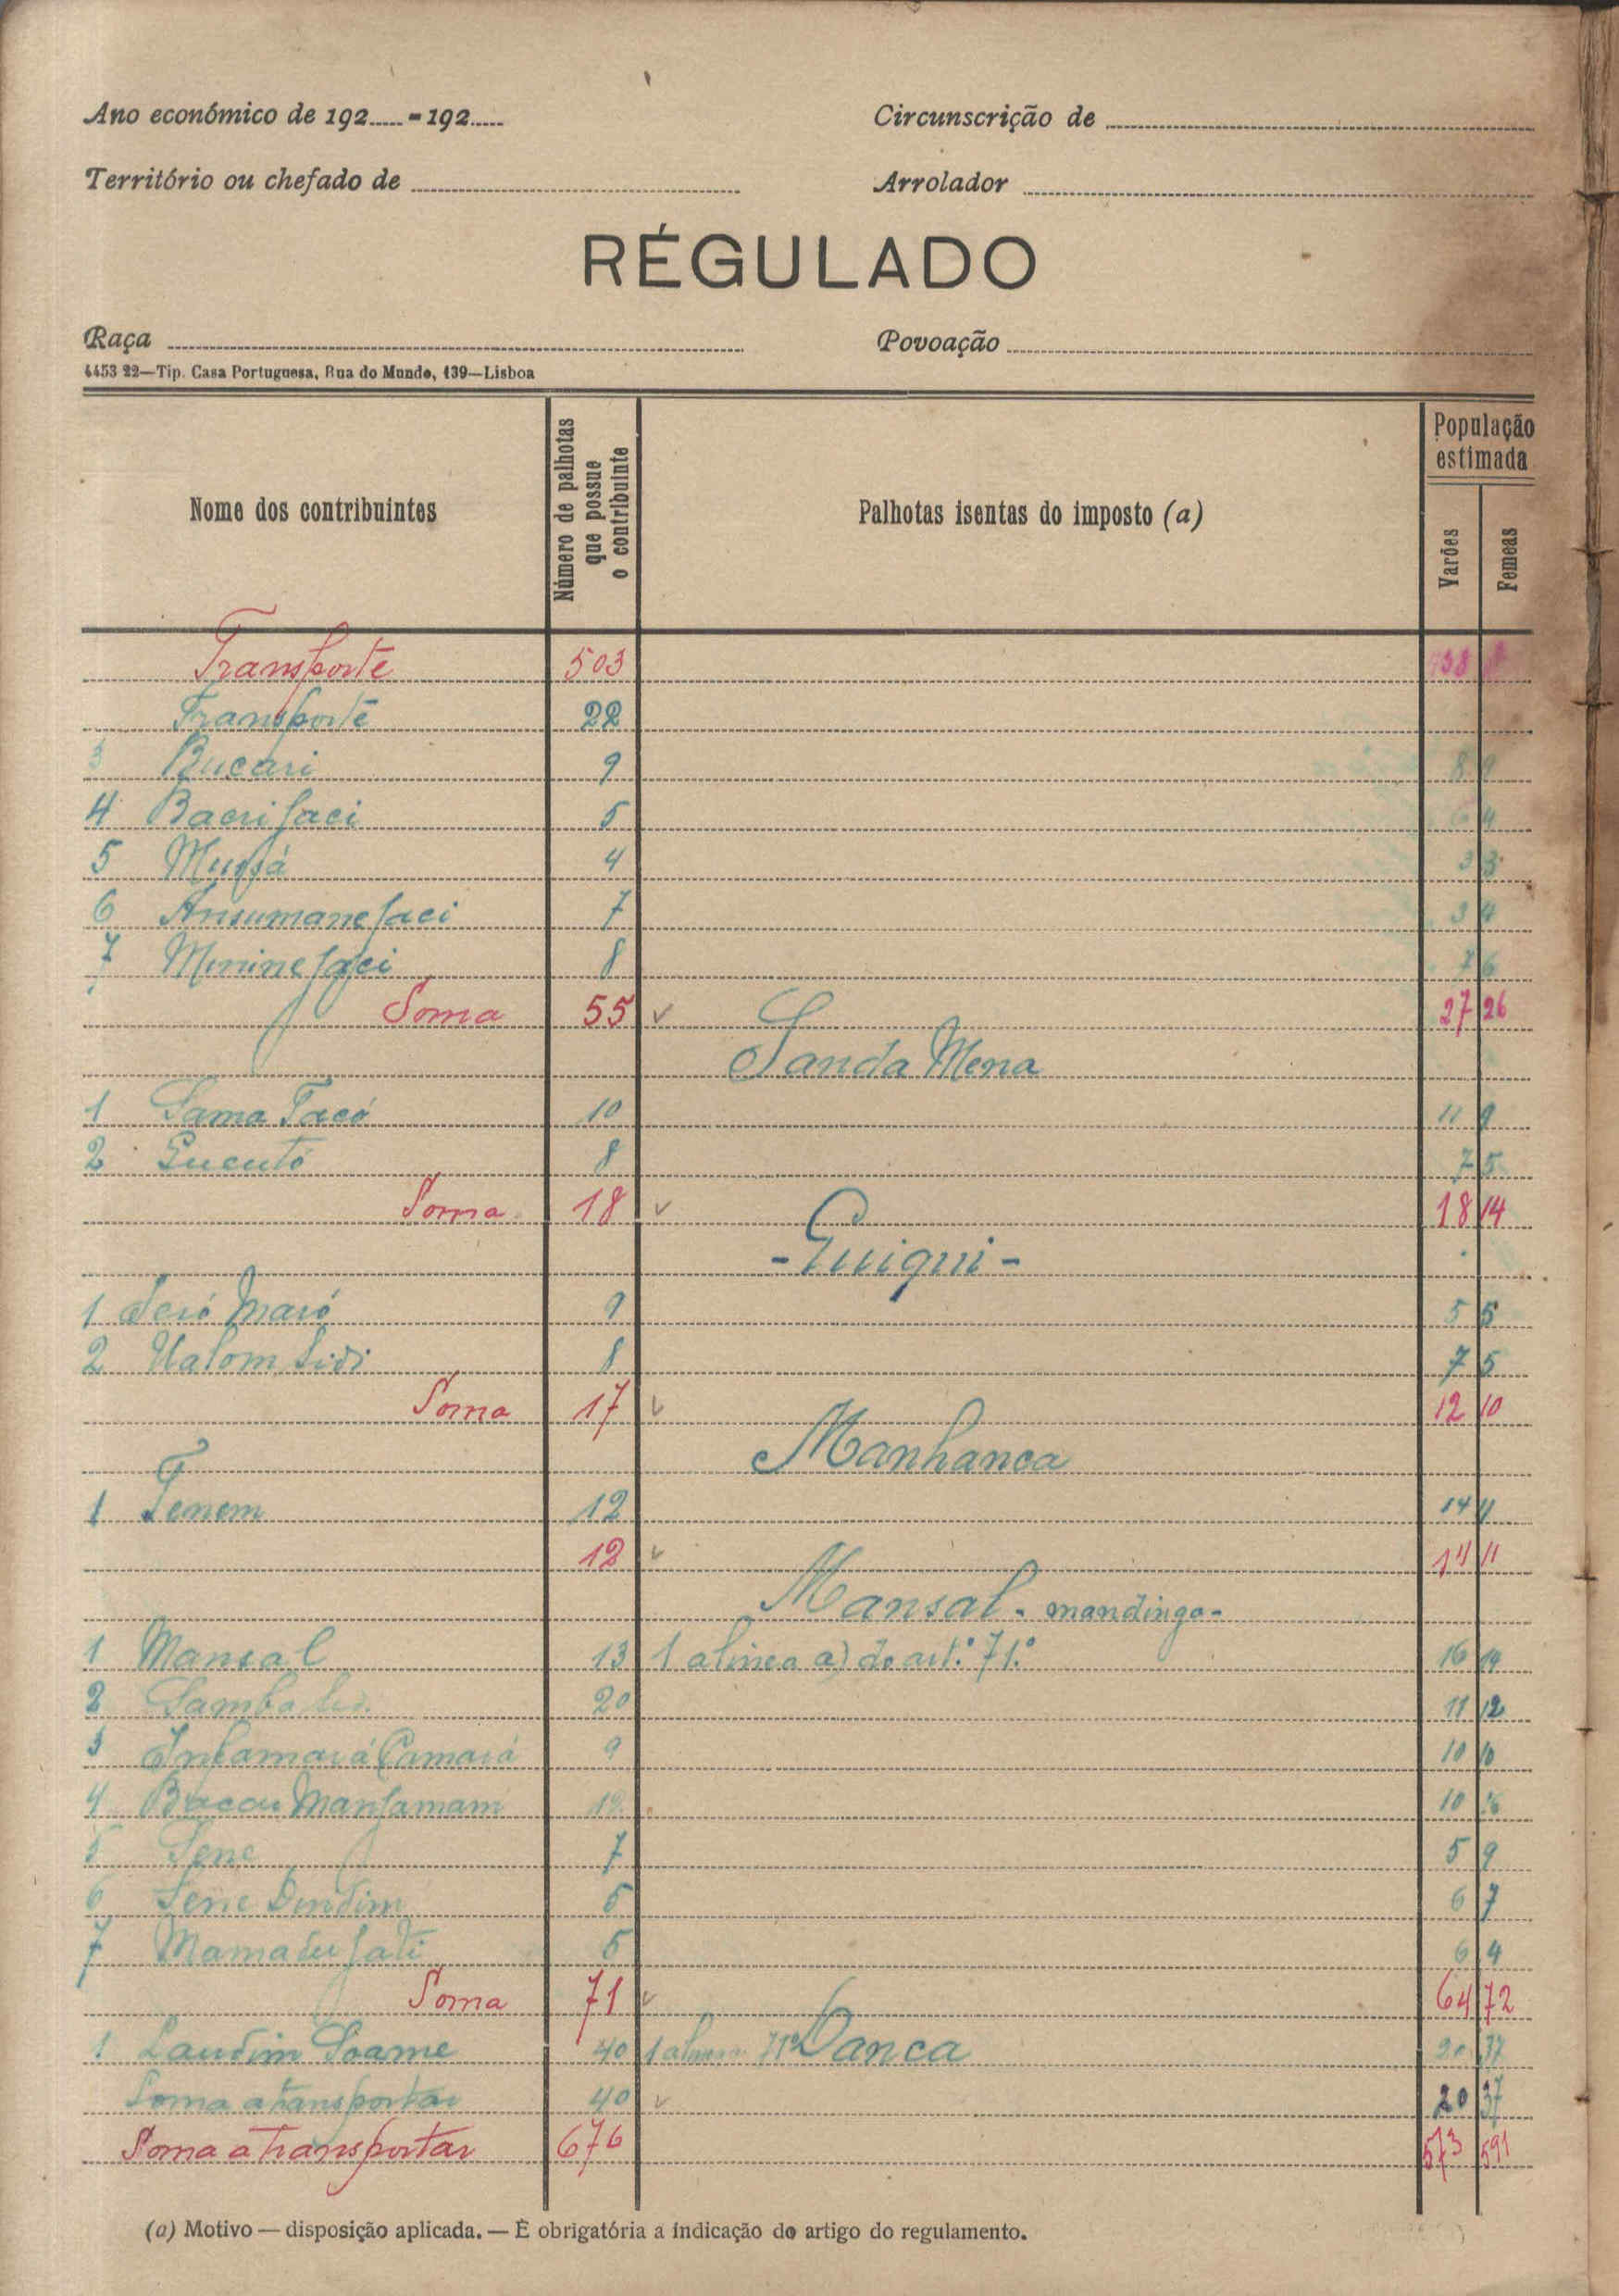 Ano económico de 192.....-192.....
Circunscrição de
Território ou chefado de
Arrolador
RÉGULADO
Raça
Povoação
4453 22—Tip. Casa Portuguesa, Rua do Mundo, 139—Lisboa
Nome dos contribuintes
Número de palhotas que possue o contribuinte
Palhotas isentas do imposto (a)
População estimada
Varões
Femeas
Transporte 503
Transporte 22
3 Bucari 9 8 9
4 Bacri faci 5 4
5 Mussá 4 3 3
6 Ansumane faci 7 3 4
7 Minine faci 8 7 6
Soma 55 27 26
Sanda Mena
1 Sama Tacó 10 11 9
2 Gucutó 8 7 5
Soma 18 18 14
- Guiqui -
1 Seió Maió 9 5 5
2 Ualom Sidi 8 7 5
Soma 17 12 10
Manhanca
1 Tenem 12 14 11
12 14 11
Mansal - mandinga -
1 Mansal 13 1 alinea a) do art.º 71.º 16 14
2 Samba 20 11 12
3 Infamará Camará 9 10 10
4 Bacou Mansamam 12 10 16
5 Sene 7 5 9
6 Sene Dindim 5 6 7
7 Mamadu fati 5 6 4
Soma 71 64 72
1 Laudim Soame 40 1 alinea 71º Danca 20 37
Soma a transportar 40 20 37
Soma a transportar 676 573 591
(a) Motivo — disposição aplicada. — É obrigatória a indicação do artigo do regulamento.